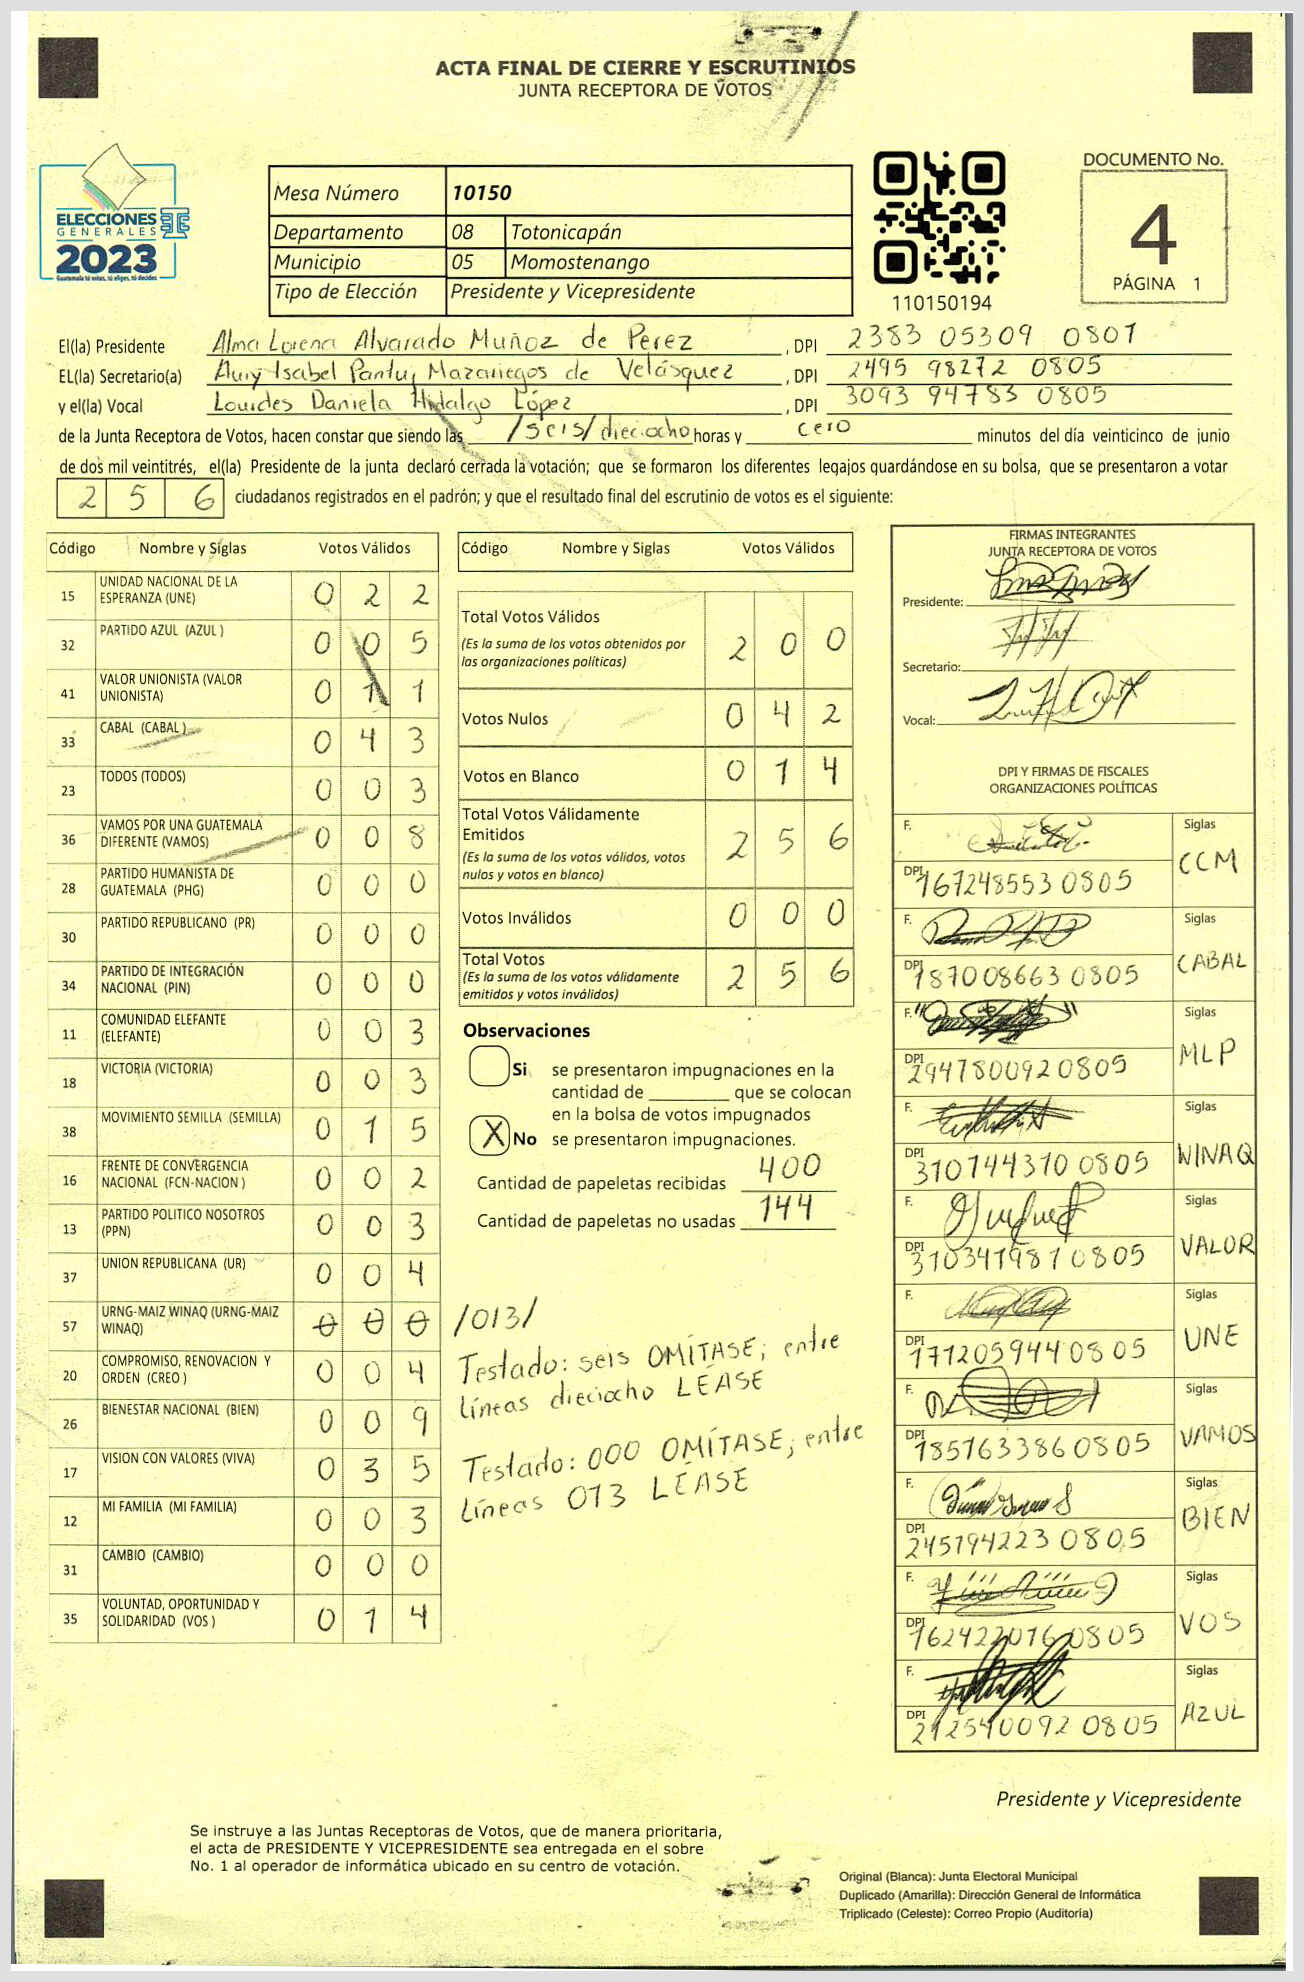 ACTA FINAL DE CIERRE Y ESCRUTINIOS
JUNTA RECEPTORA DE VOTOS
ELECCIONES
GENERALES
2023
Guatemala tú votas, tú eliges, tú decides
Mesa Número 10150
Departamento 08 Totonicapán
Municipio 05 Momostenango
Tipo de Elección Presidente y Vicepresidente
110150194
DOCUMENTO No.
4
PÁGINA 1
El(la) Presidente Alma Lorena Alvarado Muñoz de Perez, DPI 2383 05309 0801
EL(la) Secretario(a) Isabel Mazariegos de Velásquez, DPI 2495 98272 0805
y el(la) Vocal Lourdes Daniela Hidalgo López, DPI 3093 94783 0805
de la Junta Receptora de Votos, hacen constar que siendo las /seis/dieciocho horas y cero minutos del día veinticinco de junio
de dos mil veintitrés, el(la) Presidente de la junta declaró cerrada la votación; que se formaron los diferentes legajos quardándose en su bolsa, que se presentaron a votar
256 ciudadanos registrados en el padrón; y que el resultado final del escrutinio de votos es el siguiente:
Código Nombre y Siglas Votos Válidos
15 UNIDAD NACIONAL DE LA ESPERANZA (UNE) 0 2 2
32 PARTIDO AZUL (AZUL ) 0 0 5
41 VALOR UNIONISTA (VALOR UNIONISTA) 0 1 1
33 CABAL (CABAL ) 0 4 3
23 TODOS (TODOS) 0 0 3
36 VAMOS POR UNA GUATEMALA DIFERENTE (VAMOS) 0 0 8
28 PARTIDO HUMANISTA DE GUATEMALA (PHG) 0 0 0
30 PARTIDO REPUBLICANO (PR) 0 0 0
34 PARTIDO DE INTEGRACIÓN NACIONAL (PIN) 0 0 0
11 COMUNIDAD ELEFANTE (ELEFANTE) 0 0 3
18 VICTORIA (VICTORIA) 0 0 3
38 MOVIMIENTO SEMILLA (SEMILLA) 0 1 5
16 FRENTE DE CONVERGENCIA NACIONAL (FCN-NACION ) 0 0 2
13 PARTIDO POLITICO NOSOTROS (PPN) 0 0 3
37 UNION REPUBLICANA (UR) 0 0 4
57 URNG-MAIZ WINAQ (URNG-MAIZ WINAQ) 0 0 0 /013/
20 COMPROMISO, RENOVACION Y ORDEN (CREO ) 0 0 4
26 BIENESTAR NACIONAL (BIEN) 0 0 9
17 VISION CON VALORES (VIVA) 0 3 5
12 MI FAMILIA (MI FAMILIA) 0 0 3
31 CAMBIO (CAMBIO) 0 0 0
35 VOLUNTAD, OPORTUNIDAD Y SOLIDARIDAD (VOS ) 0 1 4
Código Nombre y Siglas Votos Válidos
Total Votos Válidos 2 0 0
(Es la suma de los votos obtenidos por
las organizaciones políticas)
Votos Nulos 0 4 2
Votos en Blanco 0 1 4
Total Votos Válidamente
Emitidos 2 5 6
(Es la suma de los votos válidos, votos
nulos y votos en blanco)
Votos Inválidos 0 0 0
Total Votos 2 5 6
(Es la suma de los votos válidamente
emitidos y votos inválidos)
Observaciones
Si se presentaron impugnaciones en la
cantidad de ________ que se colocan
en la bolsa de votos impugnados
X No se presentaron impugnaciones.
Cantidad de papeletas recibidas 400
Cantidad de papeletas no usadas 144
Testado: seis OMÍTASE; entre
líneas dieciocho LÉASE
Testado: 000 OMÍTASE; entre
Líneas 013 LÉASE
FIRMAS INTEGRANTES
JUNTA RECEPTORA DE VOTOS
Presidente:
Secretario:
Vocal:
DPI Y FIRMAS DE FISCALES
ORGANIZACIONES POLÍTICAS
F. Siglas
DPI 1672485530805 CCM
F. Siglas
DPI 1870086630805 CABAL
F. Siglas
DPI 2947800920805 MLP
F. Siglas
DPI 3107443100805 WINAQ
F. Siglas
DPI 3103419810805 VALOR
F. Siglas
DPI 1712059440805 UNE
F. Siglas
DPI 1851633860805 VAMOS
F. Siglas
DPI 2451942230805 BIEN
F. Siglas
DPI 1624220160805 VOS
F. Siglas
DPI 2125400920805 AZUL
Presidente y Vicepresidente
Se instruye a las Juntas Receptoras de Votos, que de manera prioritaria,
el acta de PRESIDENTE Y VICEPRESIDENTE sea entregada en el sobre
No. 1 al operador de informática ubicado en su centro de votación.
Original (Blanca): Junta Electoral Municipal
Duplicado (Amarilla): Dirección General de Informática
Triplicado (Celeste): Correo Propio (Auditoría)